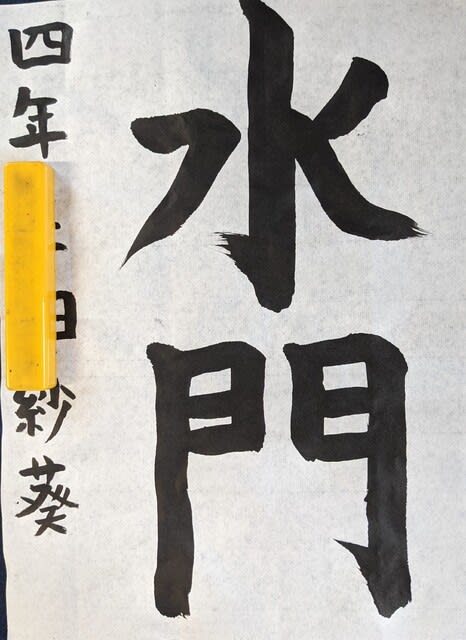 水門
四年
紗葵